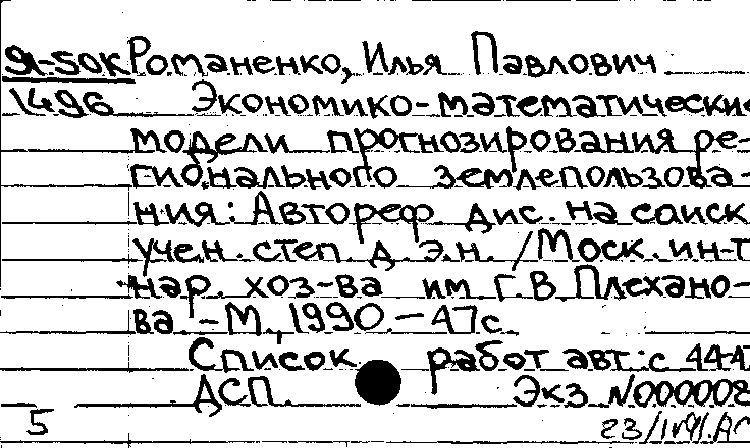 91-50К Романенко, Илья Павлович
1496 Экономико-математические
модели прогнозирования ре-
гионального землепользова-
ния: Автореф. дис. на соиск.
учен. степ. д. э. н. /Моск. ин-т
нар. хоз-ва им. Г. В. Плехано-
ва. - М., 1990. - 47 с.
Список работ авт.: с 44-47
ДСП. Экз N000008
5